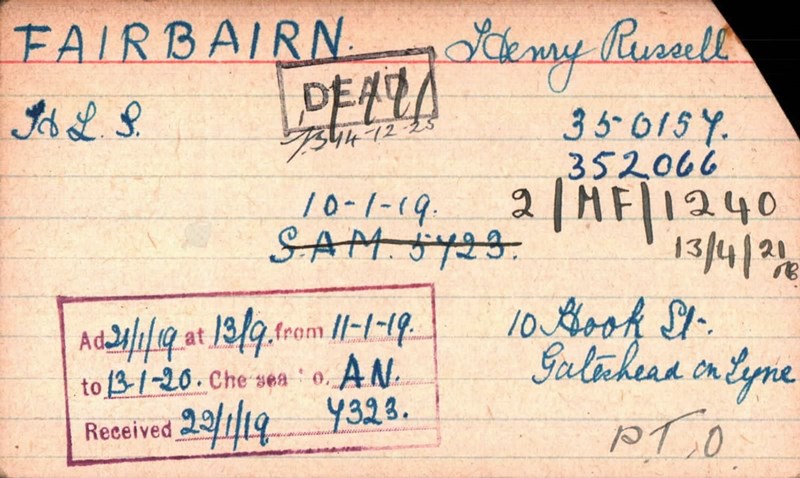 FAIRBAIRN. Henry Russell
DEAD
H.L.S. 350157.
14-12-25
352066
10-1-19. 2/MF/1240
S.A.M. 5723. 13/4/21
Ad 21/1/19 at 13/9. from 11-1-19.
to 13-1-20. Chelsea No. AN.
Received 22/1/19 7323.
10 Hook St.
Gateshead on Tyne
P.T.O